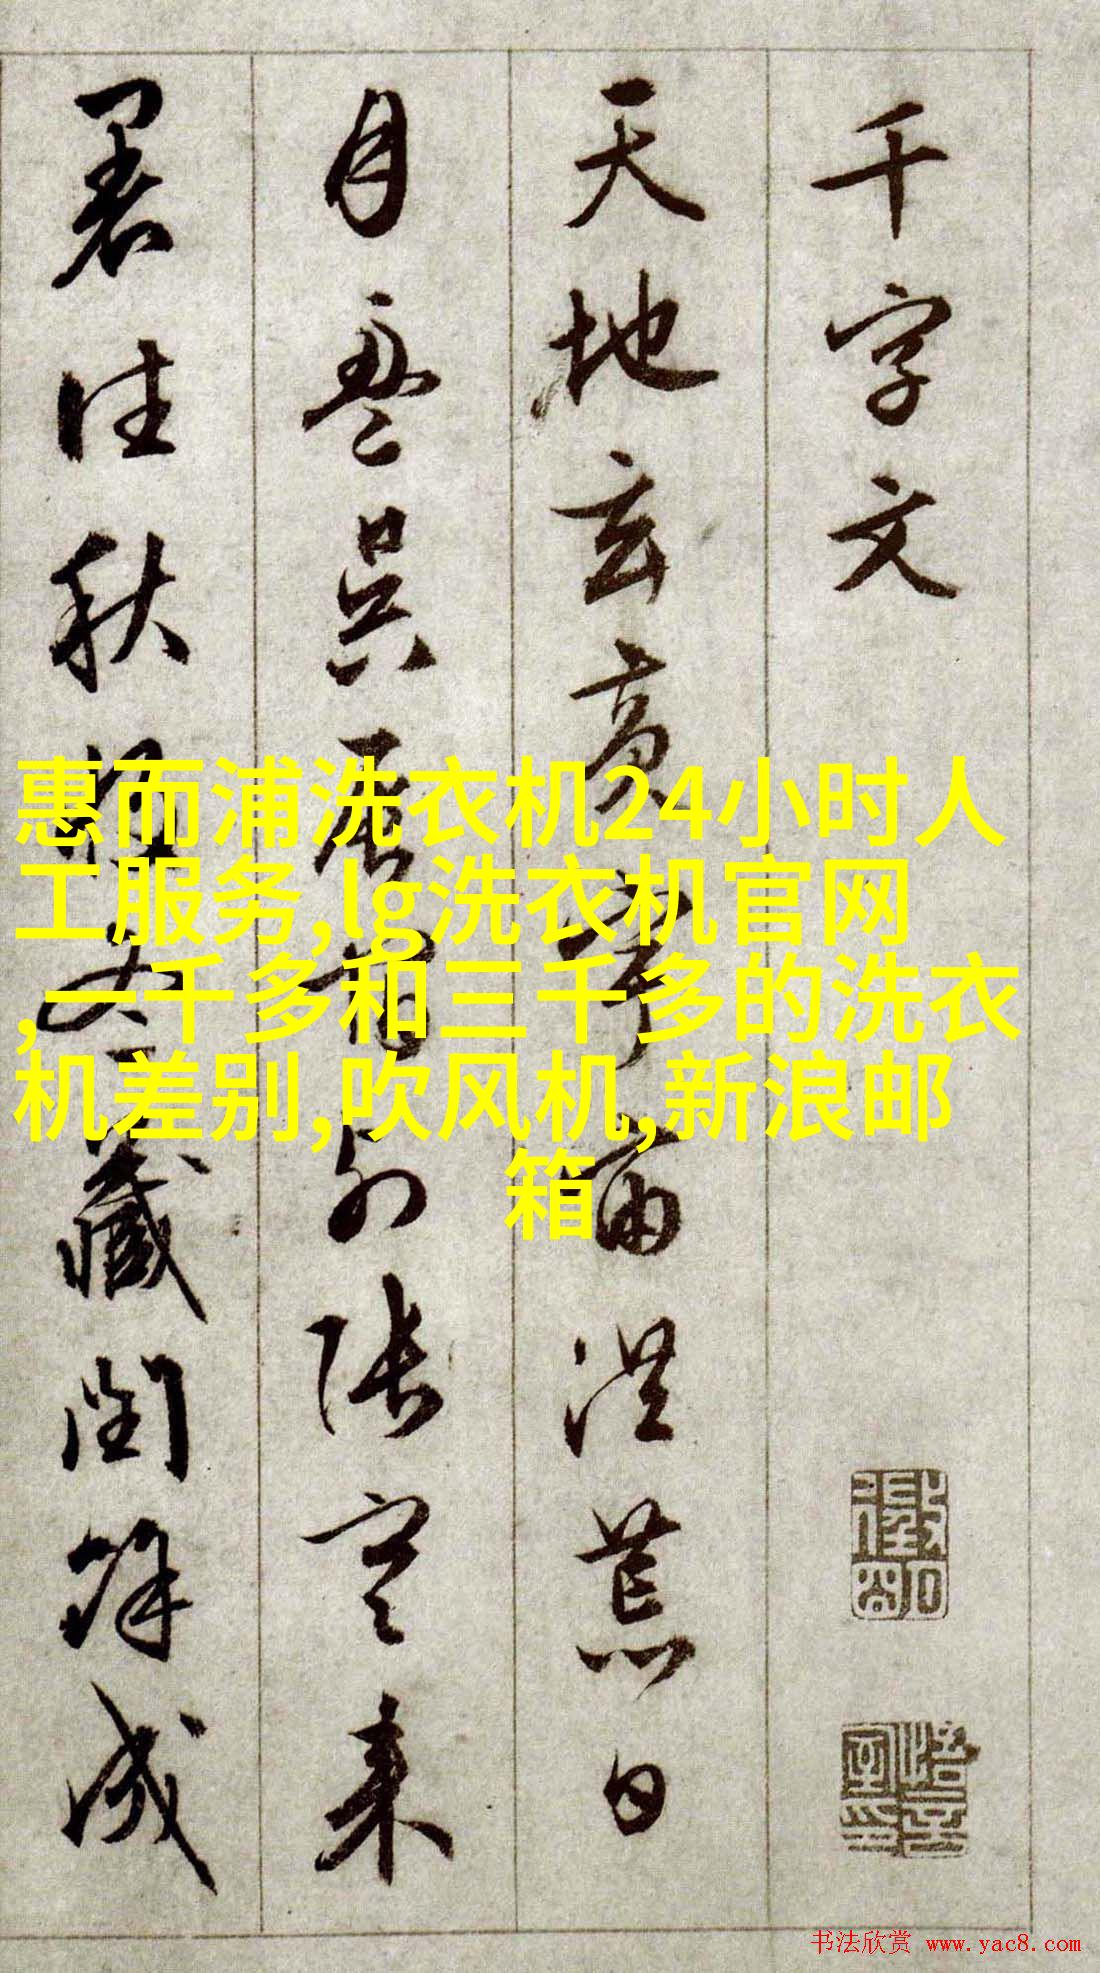 千字文
天地玄黃宇宙洪荒日
月盈昃辰宿列張寒来
暑往秋收冬藏閏餘成
惠而浦洗衣机24小时人
工服务,lg洗衣机官网
,一千多和三千多的洗衣
机差别,吹风机,新浪邮
箱
书法欣赏 www.yac8.com